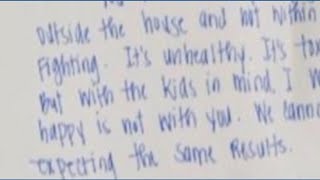 outside the house and not within
Fighting. It's unhealthy. It's
But with the kids in mind I
happy is not with you. We
expecting the same results.